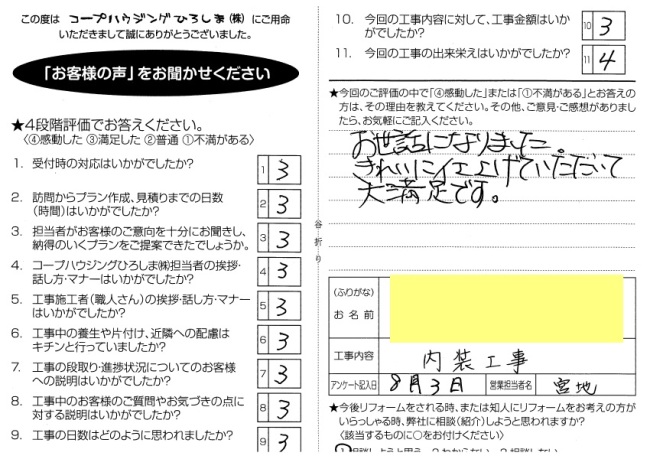 この度は コープハウジングひろしま(株) にご用命
いただきまして誠にありがとうございました。
「お客様の声」をお聞かせください
★4段階評価でお答えください。
〈④感動した ③満足した ②普通 ①不満がある〉
1. 受付時の対応はいかがでしたか? 1 3
2. 訪問からプラン作成、見積りまでの日数
(時間)はいかがでしたか? 2 3
3. 担当者がお客様のご意向を十分にお聞きし、
納得のいくプランをご提案できたでしょうか。 3 3
4. コープハウジングひろしま㈱担当者の挨拶・
話し方・マナーはいかがでしたか? 4 3
5. 工事施工者(職人さん)の挨拶・話し方・マナー
はいかがでしたか? 5 3
6. 工事中の養生や片付け、近隣への配慮は
キチンと行っていましたか? 6 3
7. 工事の段取り・進捗状況についてのお客様
への説明はいかがでしたか? 7 3
8. 工事中のお客様のご質問やお気づきの点に
対する説明はいかがでしたか? 8 3
9. 工事の日数はどのように思われましたか? 9 3
谷折り
10. 今回の工事内容に対して、工事金額はいか
がでしたか? 10 3
11. 今回の工事の出来栄えはいかがでしたか? 11 4
★今回のご評価の中で「④感動した」または「①不満がある」とお答えの
方は、その理由を教えてください。その他、ご意見・ご感想がありまし
たら、お気軽にご記入ください。
お世話になりました。
きれいに仕上げていただいて
大満足です。
(ふりがな)
お名前
工事内容 内装工事
アンケート記入日 8月3日 営業担当者名 宮地
★今後リフォームをされる時、または知人にリフォームをお考えの方が
いらっしゃる時、弊社に相談(紹介)しようと思われますか?
〈該当するものに○をお付けください〉
1 相談しようと思う 2 わからない 3 相談しない